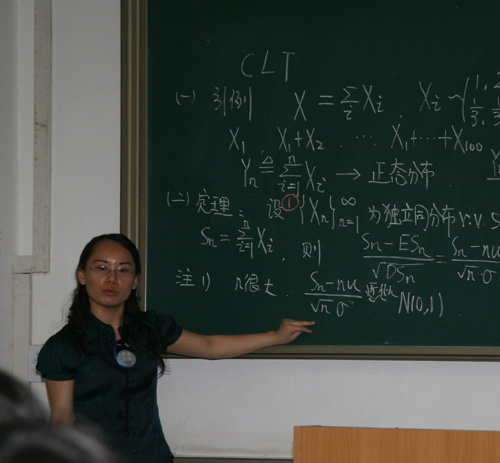 CLT
(一) 引例 X = Σ_i X_i . X_i ~ { 1, 1/3, 1/3,
X_1 , X_1+X_2 ... X_1+...+X_100
Y_n ≜ Σ_{i=1}^n X_i → 正态分布 .
(二) 定理 : 设 ① {X_n}_{n=1}^∞ 为独立同分布 r.v.s
S_n = Σ_{i=1}^n X_i , 则 (S_n - ES_n)/√DS_n = (S_n - nu)/(√n σ
注 1) n很大 . (S_n - nu)/(√n σ) 近似 N(0,1)